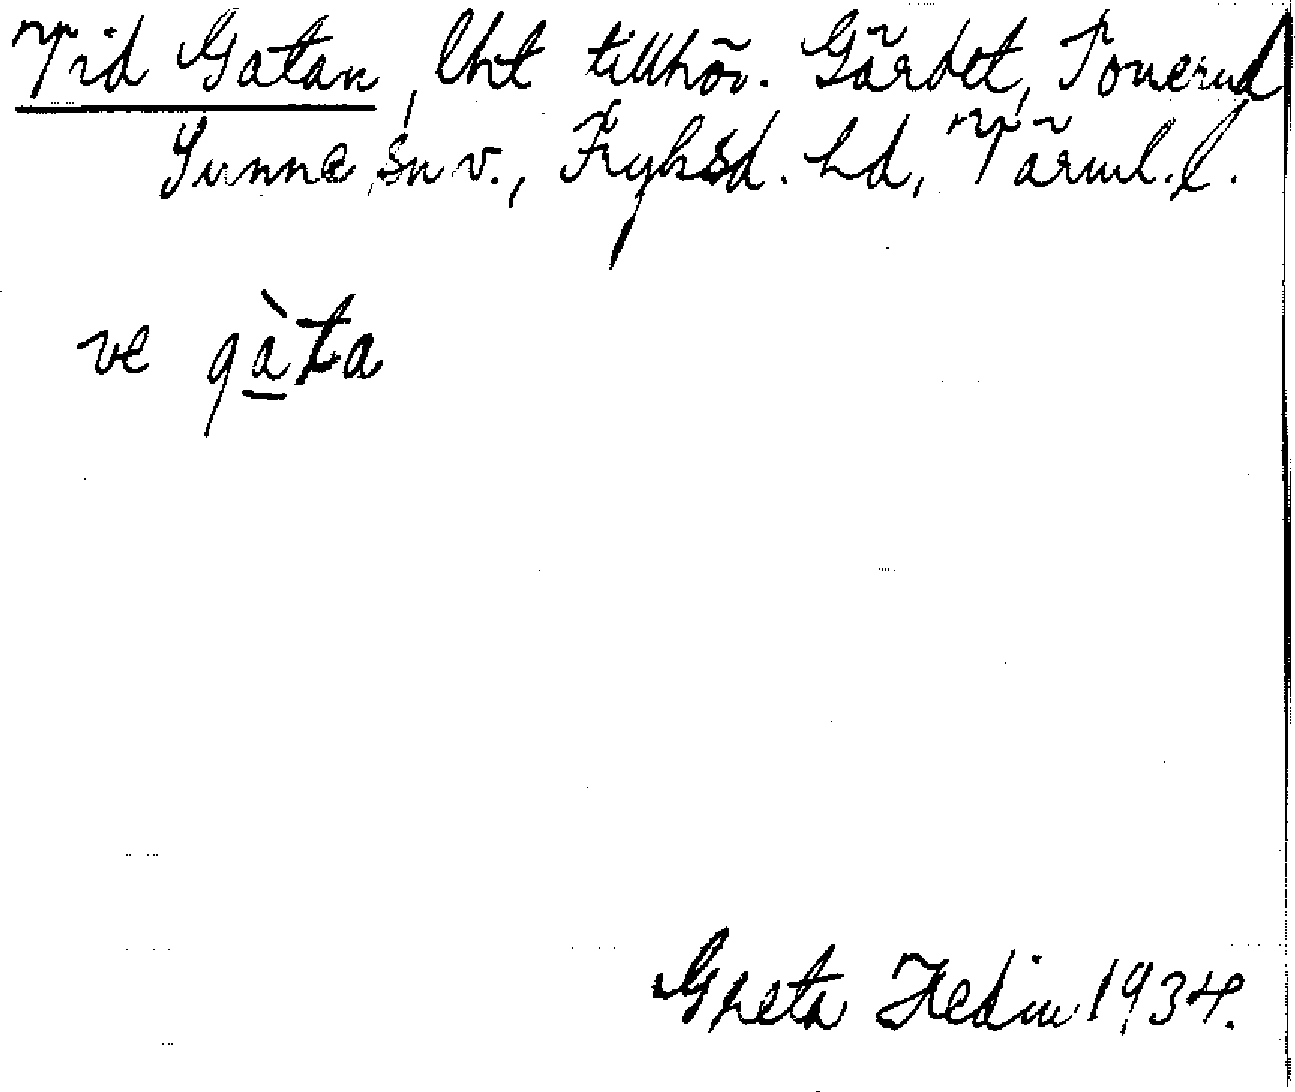 Vid Gatan, lht tillhör. Gärdet, Tonerud
Sunne sn v., Fryksd. hd, Värml. l.
ve gàta
Greta Hedin 1934.